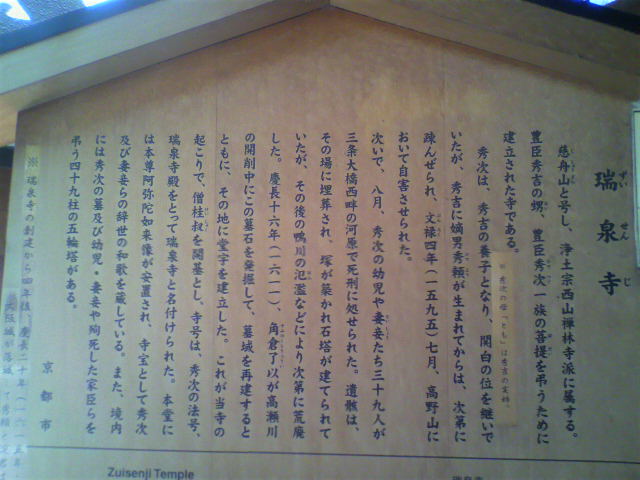 瑞泉寺
ずいせんじ
慈舟山と号し、浄土宗西山禅林寺派に属する。
豊臣秀吉の甥、豊臣秀次一族の菩提を弔うために
建立された寺である。
※ 秀次の母「とも」は秀吉の実姉。
秀次は、秀吉の養子となり、関白の位を継いで
いたが、秀吉に嫡男秀頼が生まれてからは、次第に
疎んぜられ、文禄四年(一五九五)七月、高野山に
おいて自害させられた。
次いで、八月、秀次の幼児や妻妾たち三十九人が
三条大橋西畔の河原で死刑に処せられた。遺骸は、
その場に埋葬され、塚が築かれ石塔が建てられて
いたが、その後の鴨川の氾濫などにより次第に荒廃
した。慶長十六年(一六一一)、角倉了以が高瀬川
の開削中にこの墓石を発掘して、墓域を再建すると
ともに、その地に堂宇を建立した。これが当寺の
起こりで、僧桂叔を開基とし、寺号は、秀次の法号、
瑞泉寺殿をとって瑞泉寺と名付けられた。本堂に
は本尊阿弥陀如来像が安置され、寺宝として秀次
及び妻妾らの辞世の和歌を蔵している。また、境内
には秀次の墓及び幼児・妻妾や殉死した家臣らを
弔う四十九柱の五輪塔がある。
京都市
※ 瑞泉寺の創建から四年後、慶長二十年(一六一五年
大阪城が落城して秀頼と
Zuisenji Temple